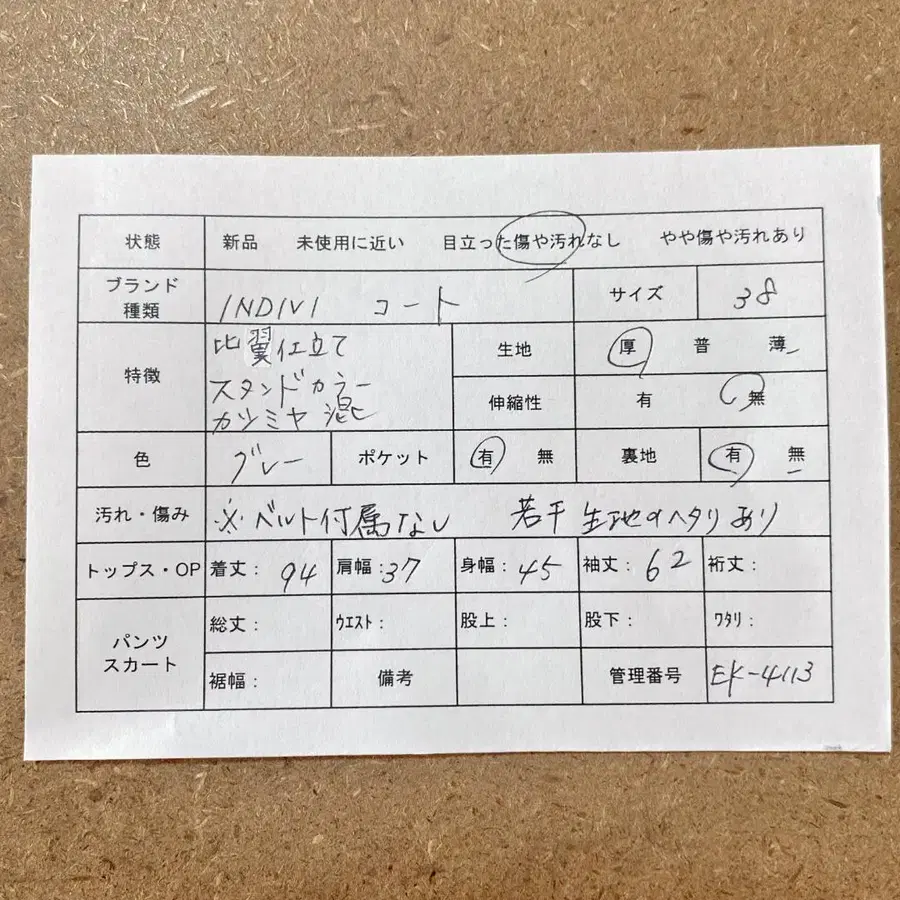 状態 新品 未使用に近い 目立った傷や汚れなし やや傷や汚れあり
ブランド 種類 INDIVI コート サイズ 38
特徴 比翼仕立て 生地 厚 普 薄
スタンドカラー
カツミヤ混 伸縮性 有 無
色 グレー ポケット 有 無 裏地 有 無
汚れ・傷み ※ベルト付属なし 若干生地のヘタリあり
トップス・OP 着丈: 94 肩幅:37 身幅: 45 袖丈: 62 裄丈:
パンツ スカート 総丈: ウエスト: 股上: 股下: ワタリ:
裾幅: 備考 管理番号 EK-4113